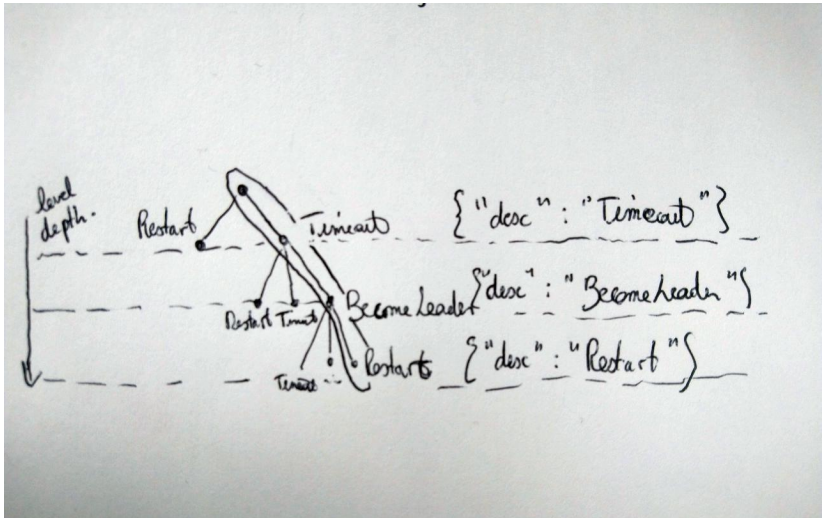 level
depth.
Restart
Timeout
{"desc" : "Timeout"}
Restart
Timeout
BecomeLeader
{"desc" : "BecomeLeader"}
Timeout
Restart
{"desc" : "Restart"}